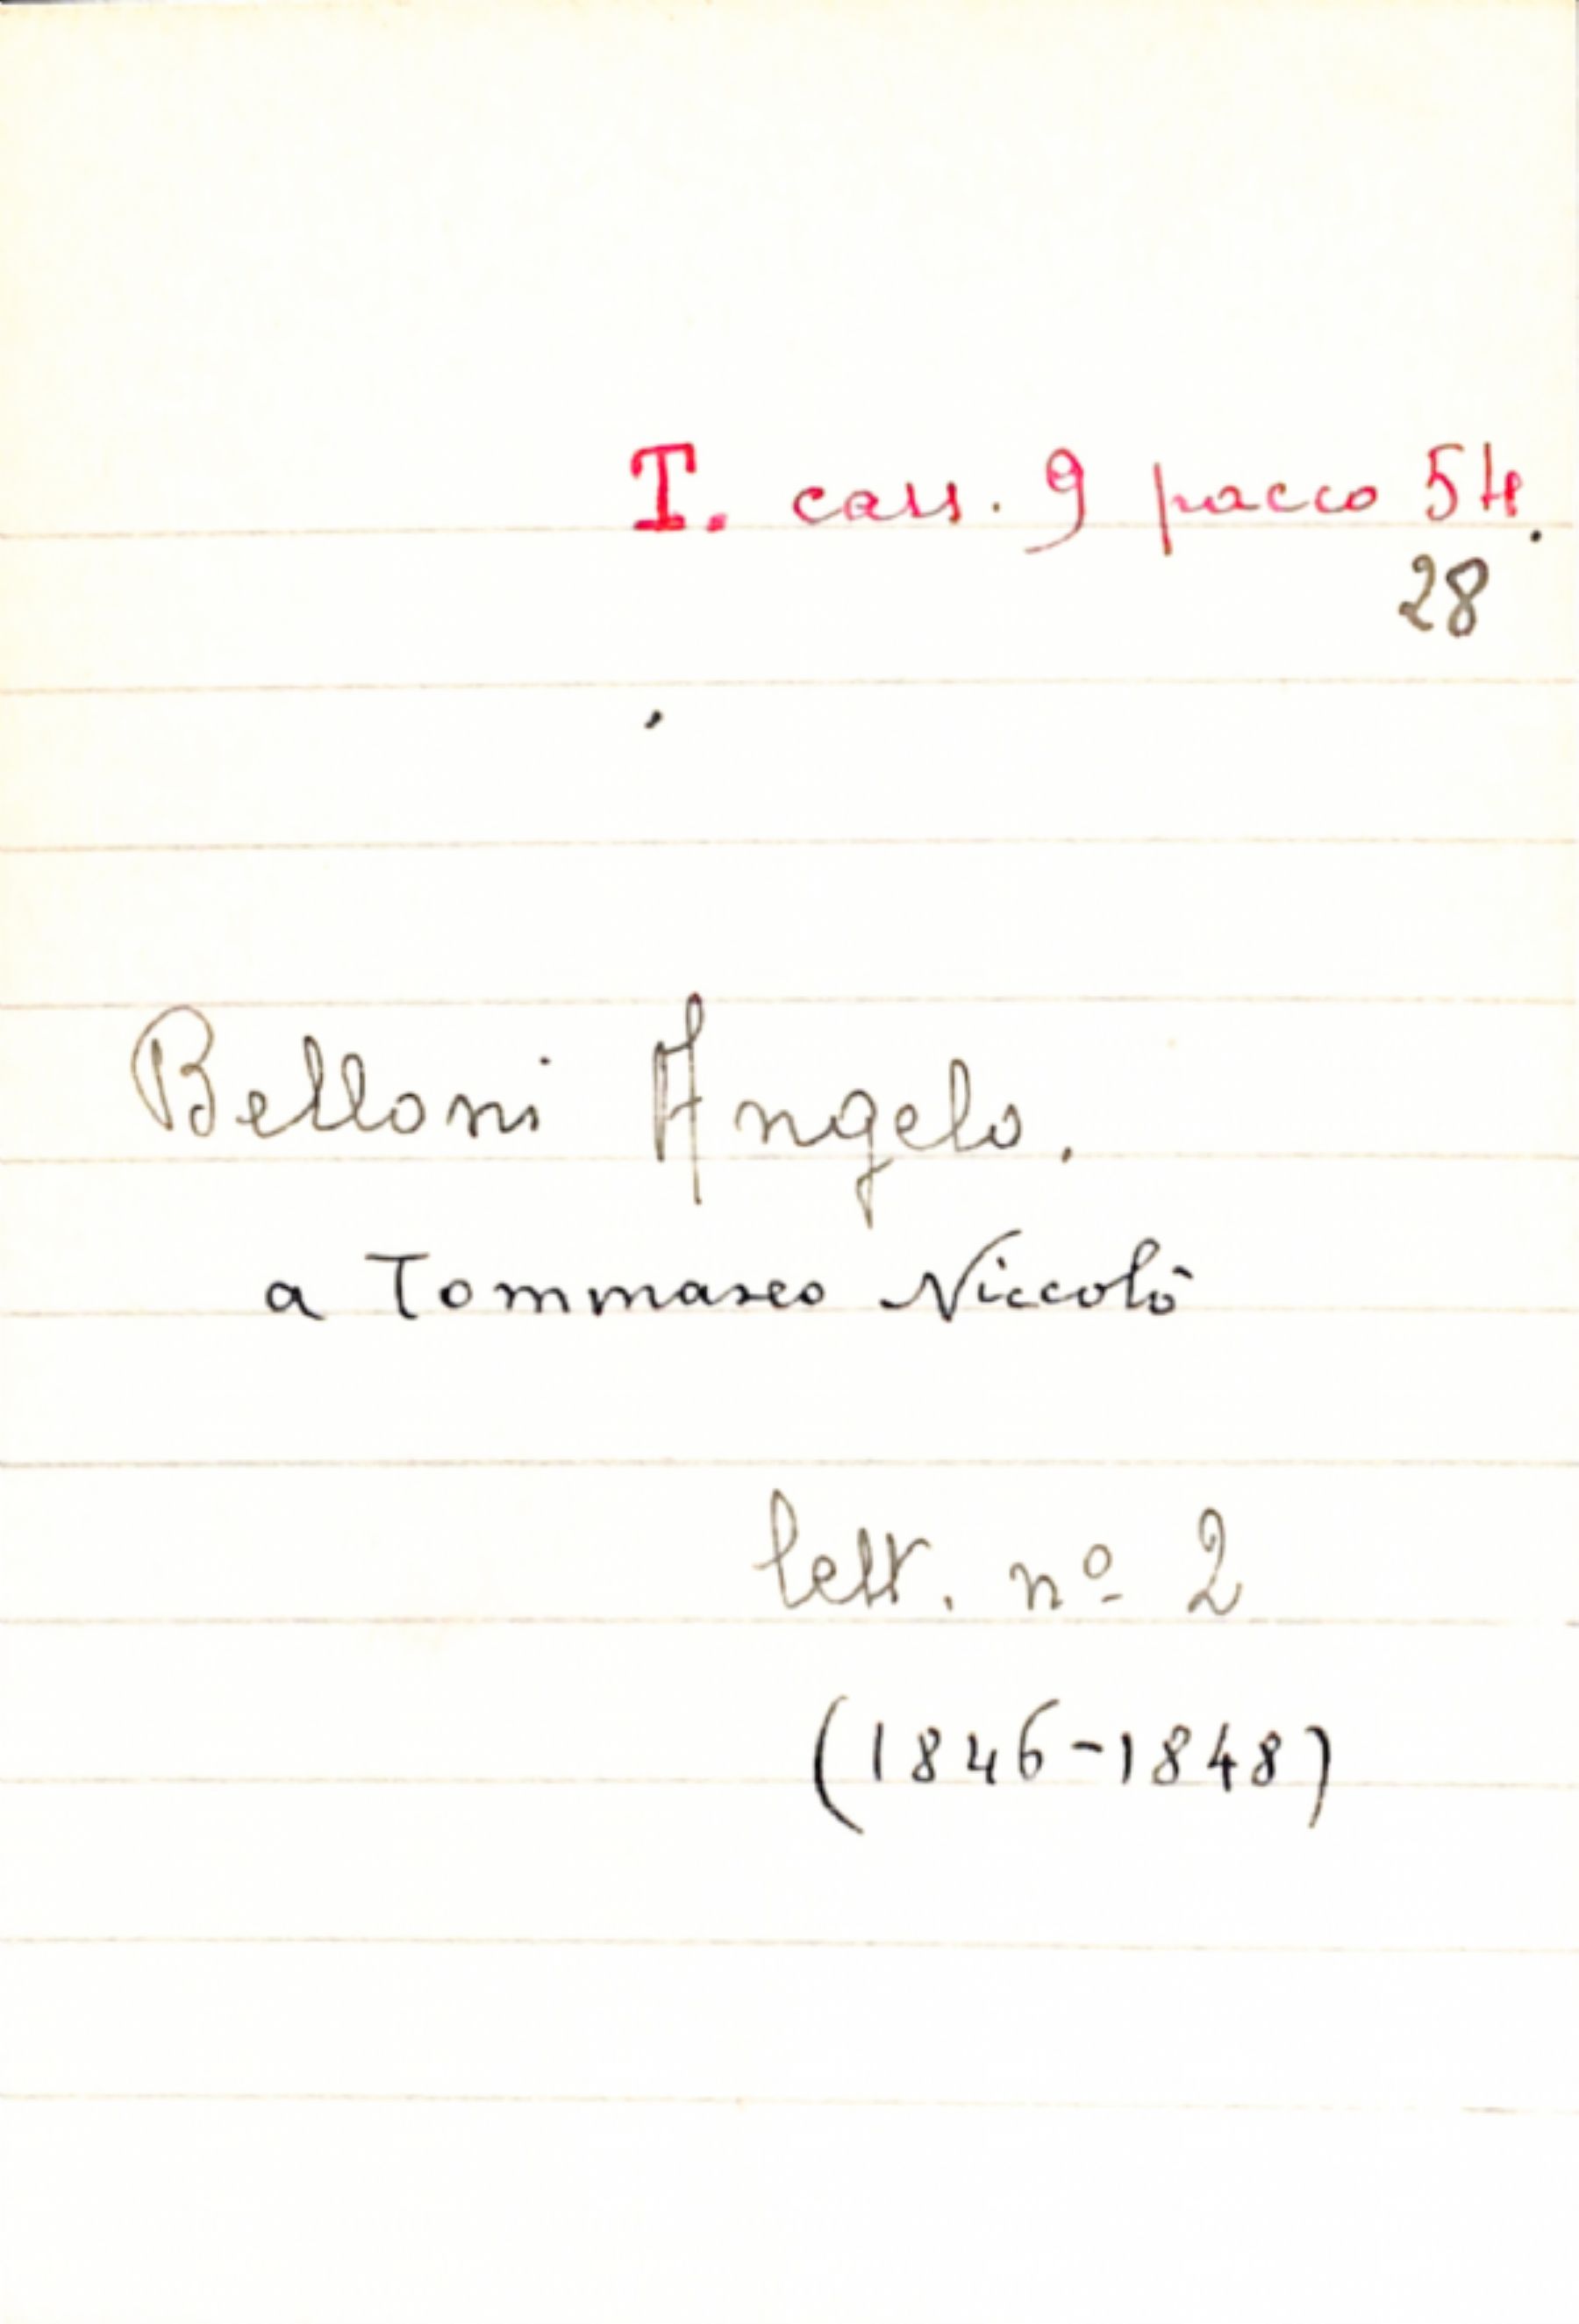 T. cass. 9 pacco 54.
28
Belloni Angelo.
a Tommaseo Niccolò
lett. nº 2
(1846-1848)